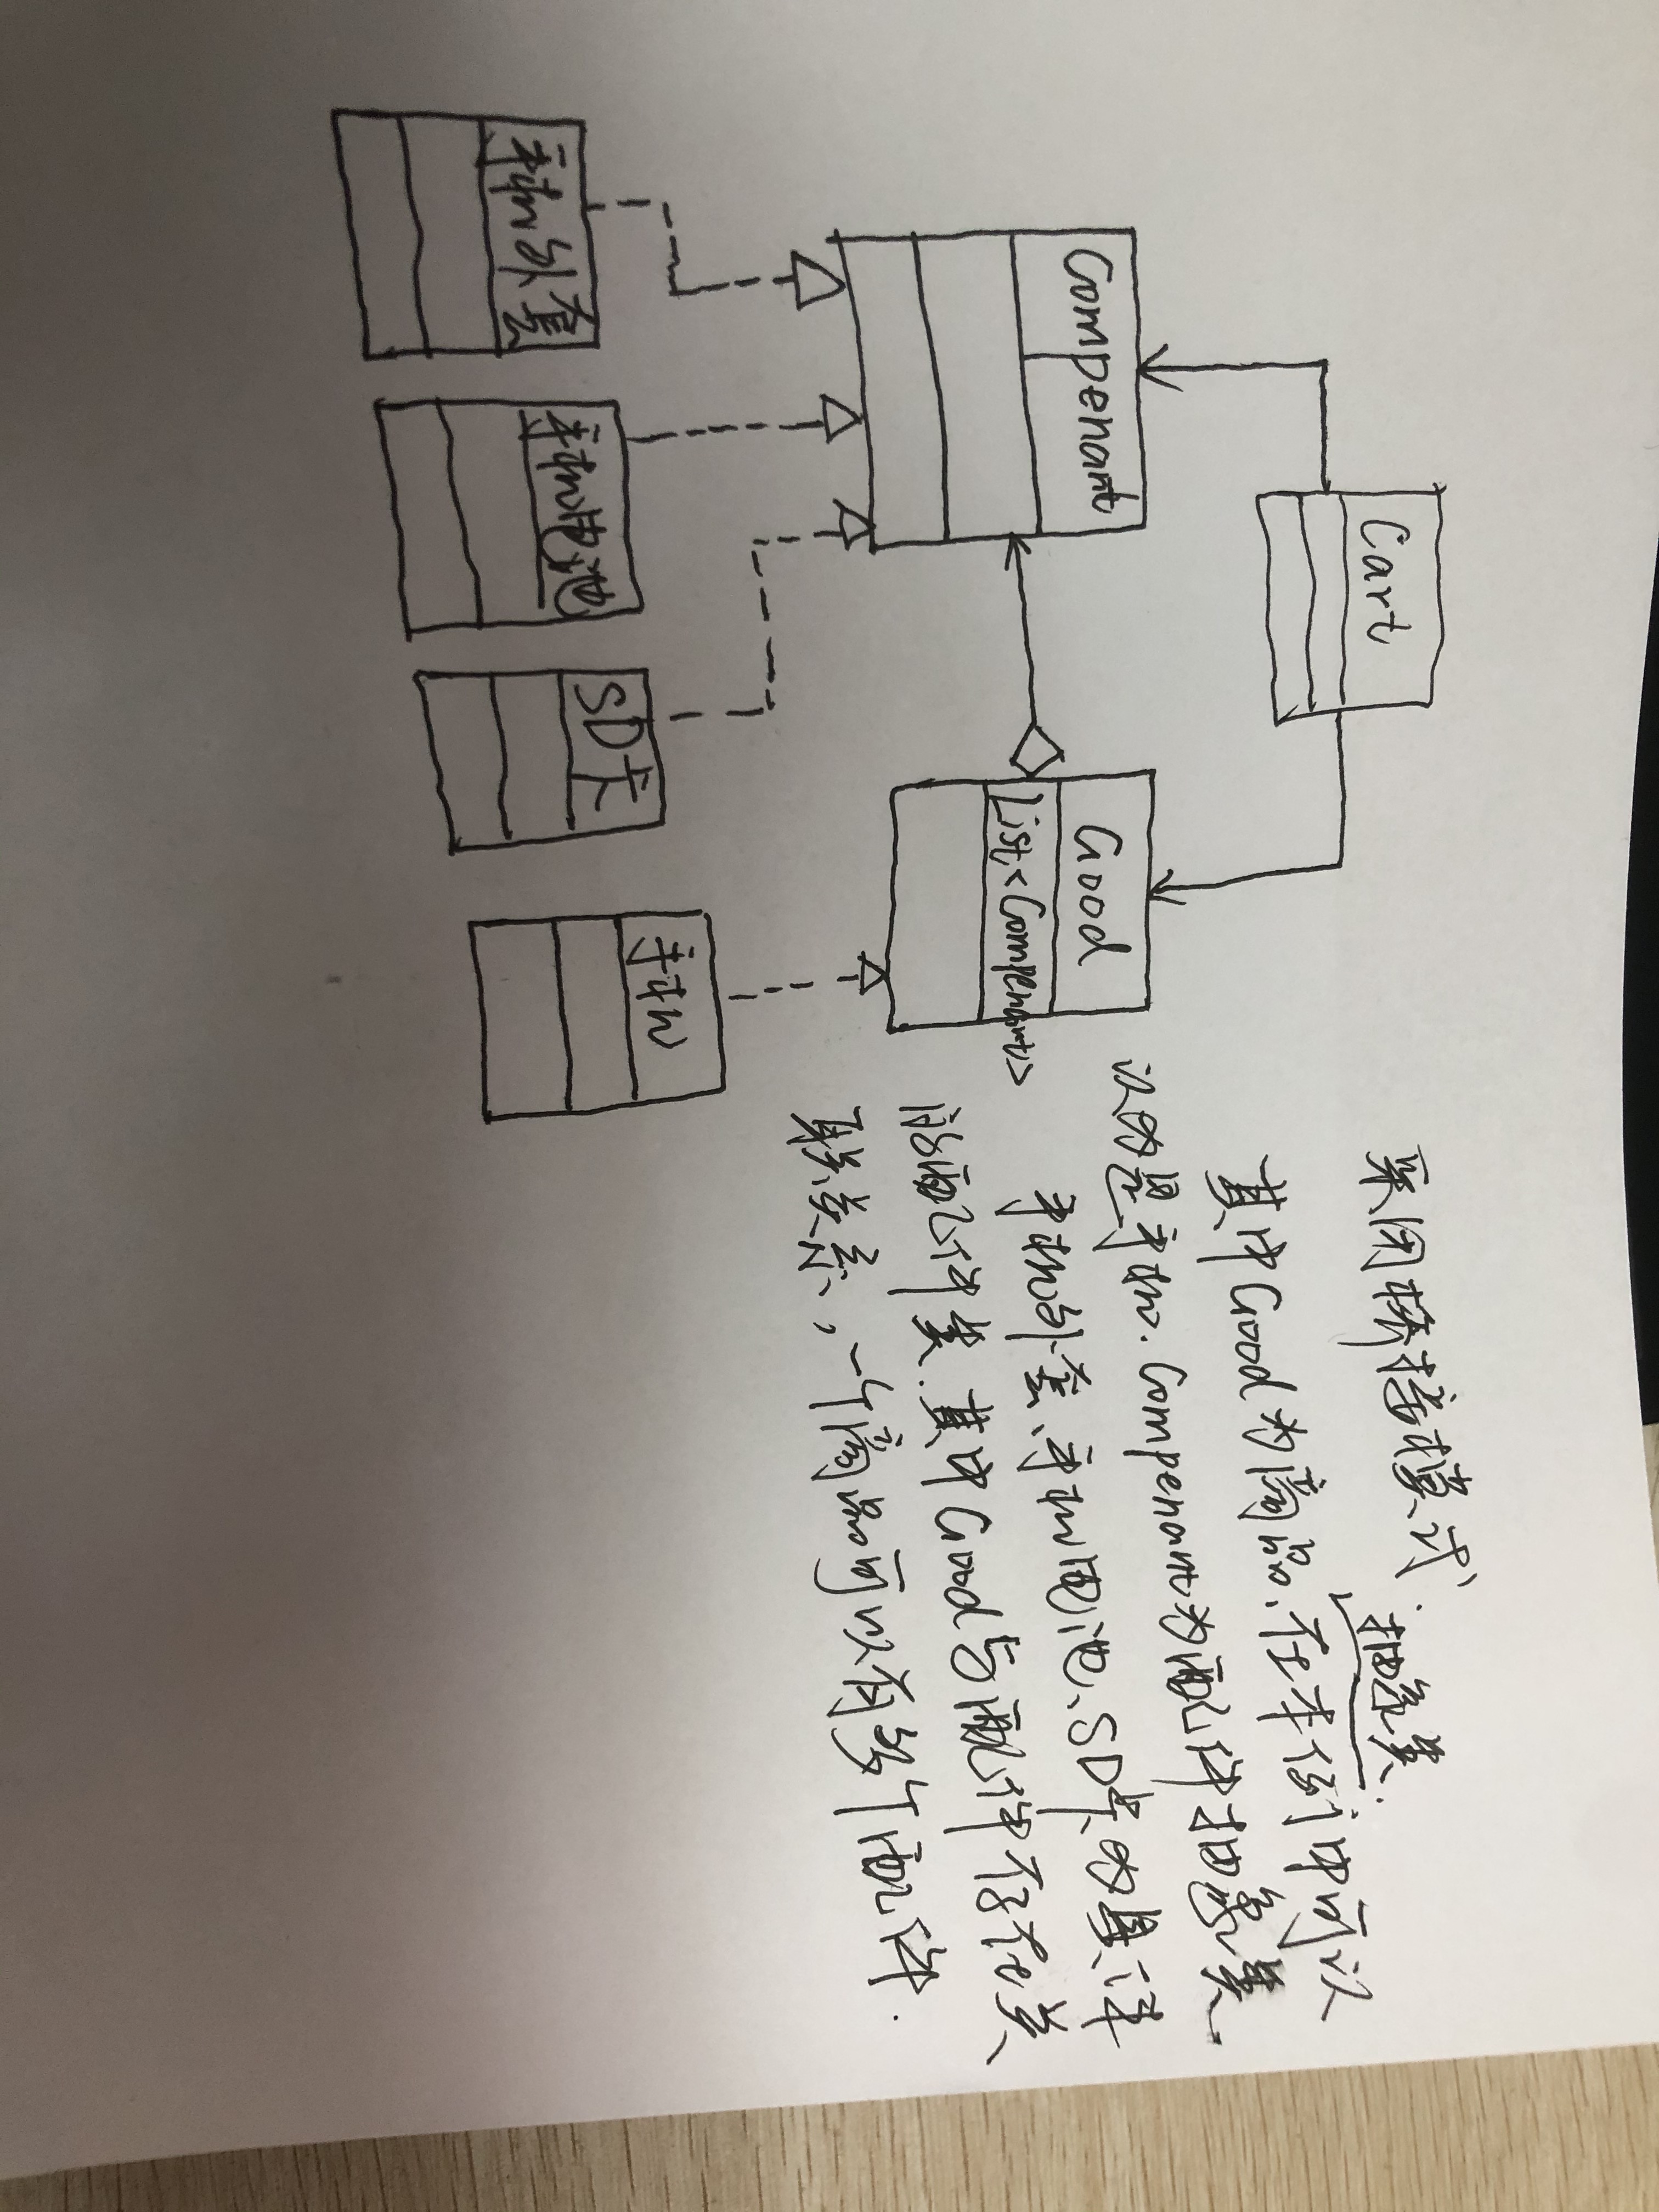 Cart
Compenant
Good
List<Compenant>
手机外套
手机电池
SD卡
手机
采用桥接模式.
抽象类.
其中Good为商品、在本例中可以
认为是手机. Compenant为配件抽象类.
手机外套、手机电池、SD卡为具体
的配件类. 其中Good与配件存在关
联关系，一个商品可以有多个配件.